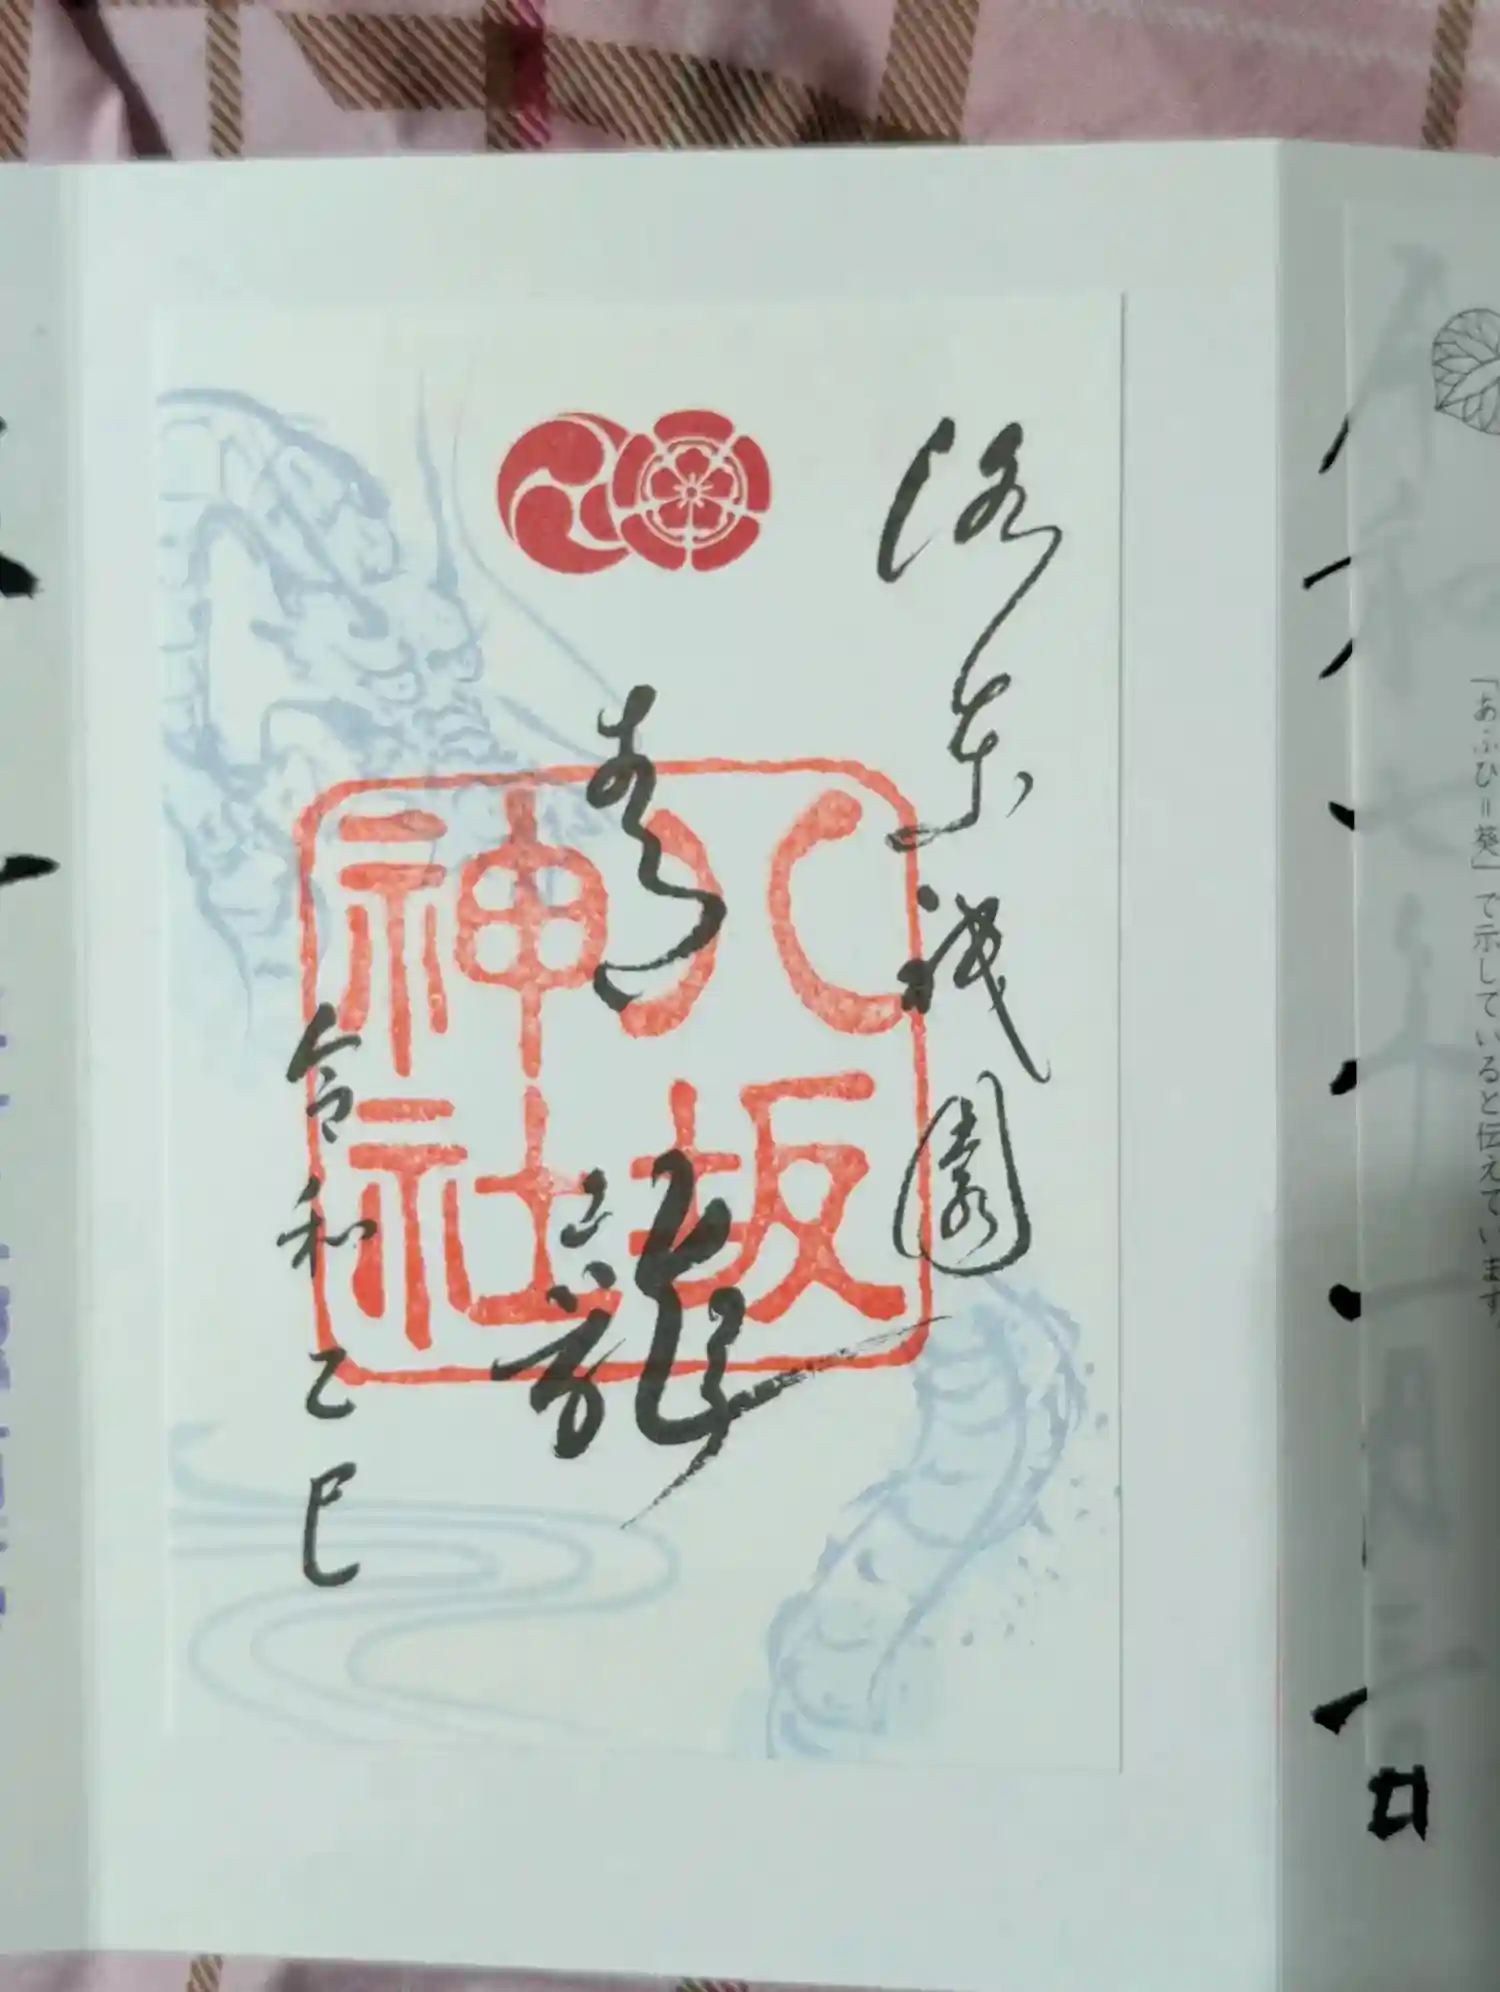 洛東祇園
青龍
令和乙巳
八坂
神社
「あふひ＝葵」で示していると伝えています